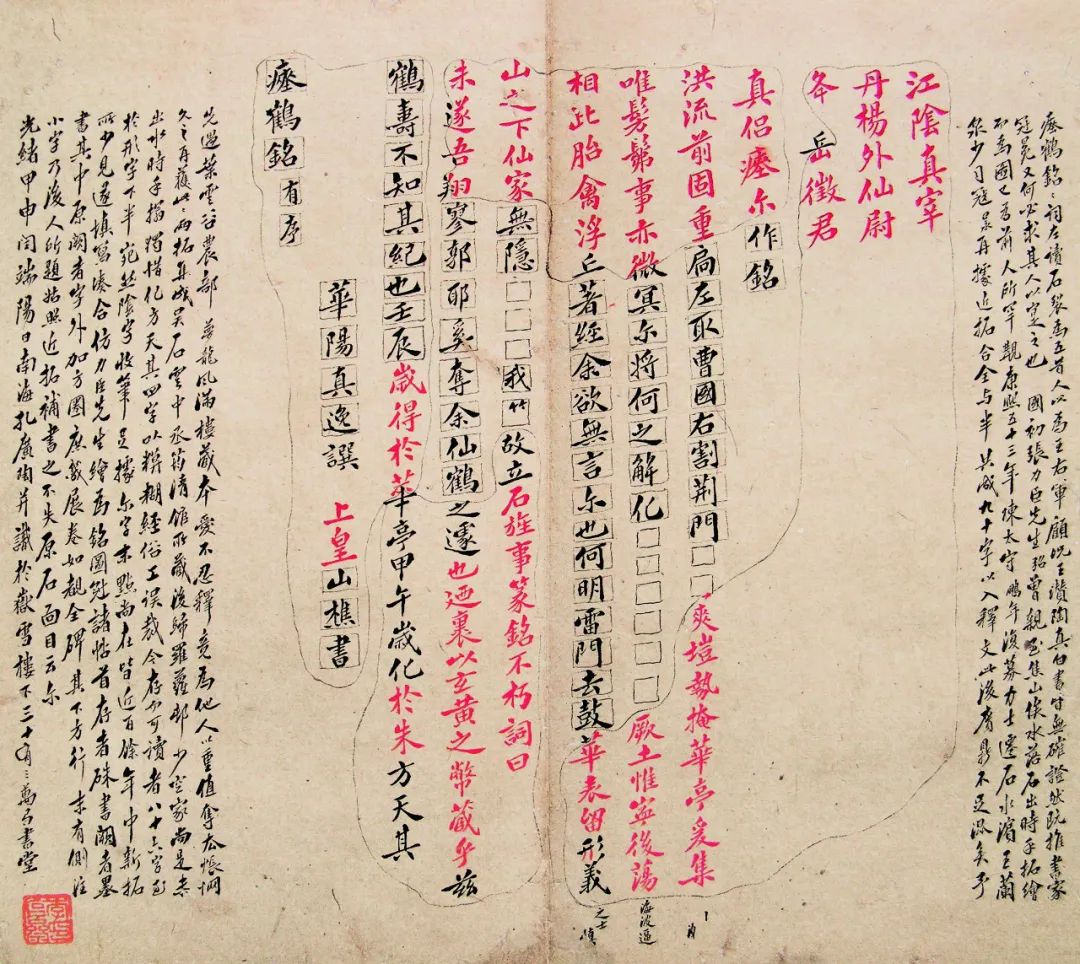 瘞鶴銘銘詞左讀石裂為五昔人以為王右軍顧況王瓚陶真白書皆無確證然既推書家
冠冕又何必求其人以實之也 國初張力臣先生弨曾親至焦山俟水落石出時手拓繪
而為圖已為前人所罕覯康熙五十三年陳太守鵬年復募力士遷石水濱王蘭
泉少司寇昶再據近拓合全与半共成九十字以入釋文此後膺鼎不足混矣予
瘞鶴銘有序
華陽真逸譔 上皇山樵書
鶴壽不知其紀也壬辰歲得於華亭甲午歲化於朱方天其
未遂吾翔寥郭耶奚奪余仙鶴之遽也迺裹以玄黃之幣藏乎茲
山之下仙家無隱□□□我竹□故立石旌事篆銘不朽詞曰
相此胎禽浮丘著經余欲無言尔也何明雷門去鼓華表留形義
唯髣髴事亦微冥尔將何之解化□□□□□□厥土惟寧後蕩
洪流前固重扃左取曹國右割荆門□□爽塏勢掩華亭爰集
真侶瘞尔作銘
夅岳徵君
丹楊外仙尉
江陰真宰
先週葉雲谷農部 夢龍風滿樓藏本愛不忍釋竟為他人以重值奪去悵惘
久之再獲此二兩拓集成吴石雲中丞筠清館所藏後歸羅蘿邨少空家尚是未
出水時手搨獨惜化方天其四字以糢糊經俗工誤裁今存可讀者八十六字
於形字下半宛然陰字收筆據尔字末點尚在皆近百餘年中新拓
所少見遂填寫湊合仿力臣先生繪為銘圖冠諸帖首存者硃書闕者墨
書其中原闕者字外加方圍庶幾展卷如覩全碑其下方行末有側注
小字乃後人所題姑照近拓補書之不失原石面目云尔
光緒甲申閏端陽日南海孔廣陶并識於嶽雪樓下三十有三萬卷書堂